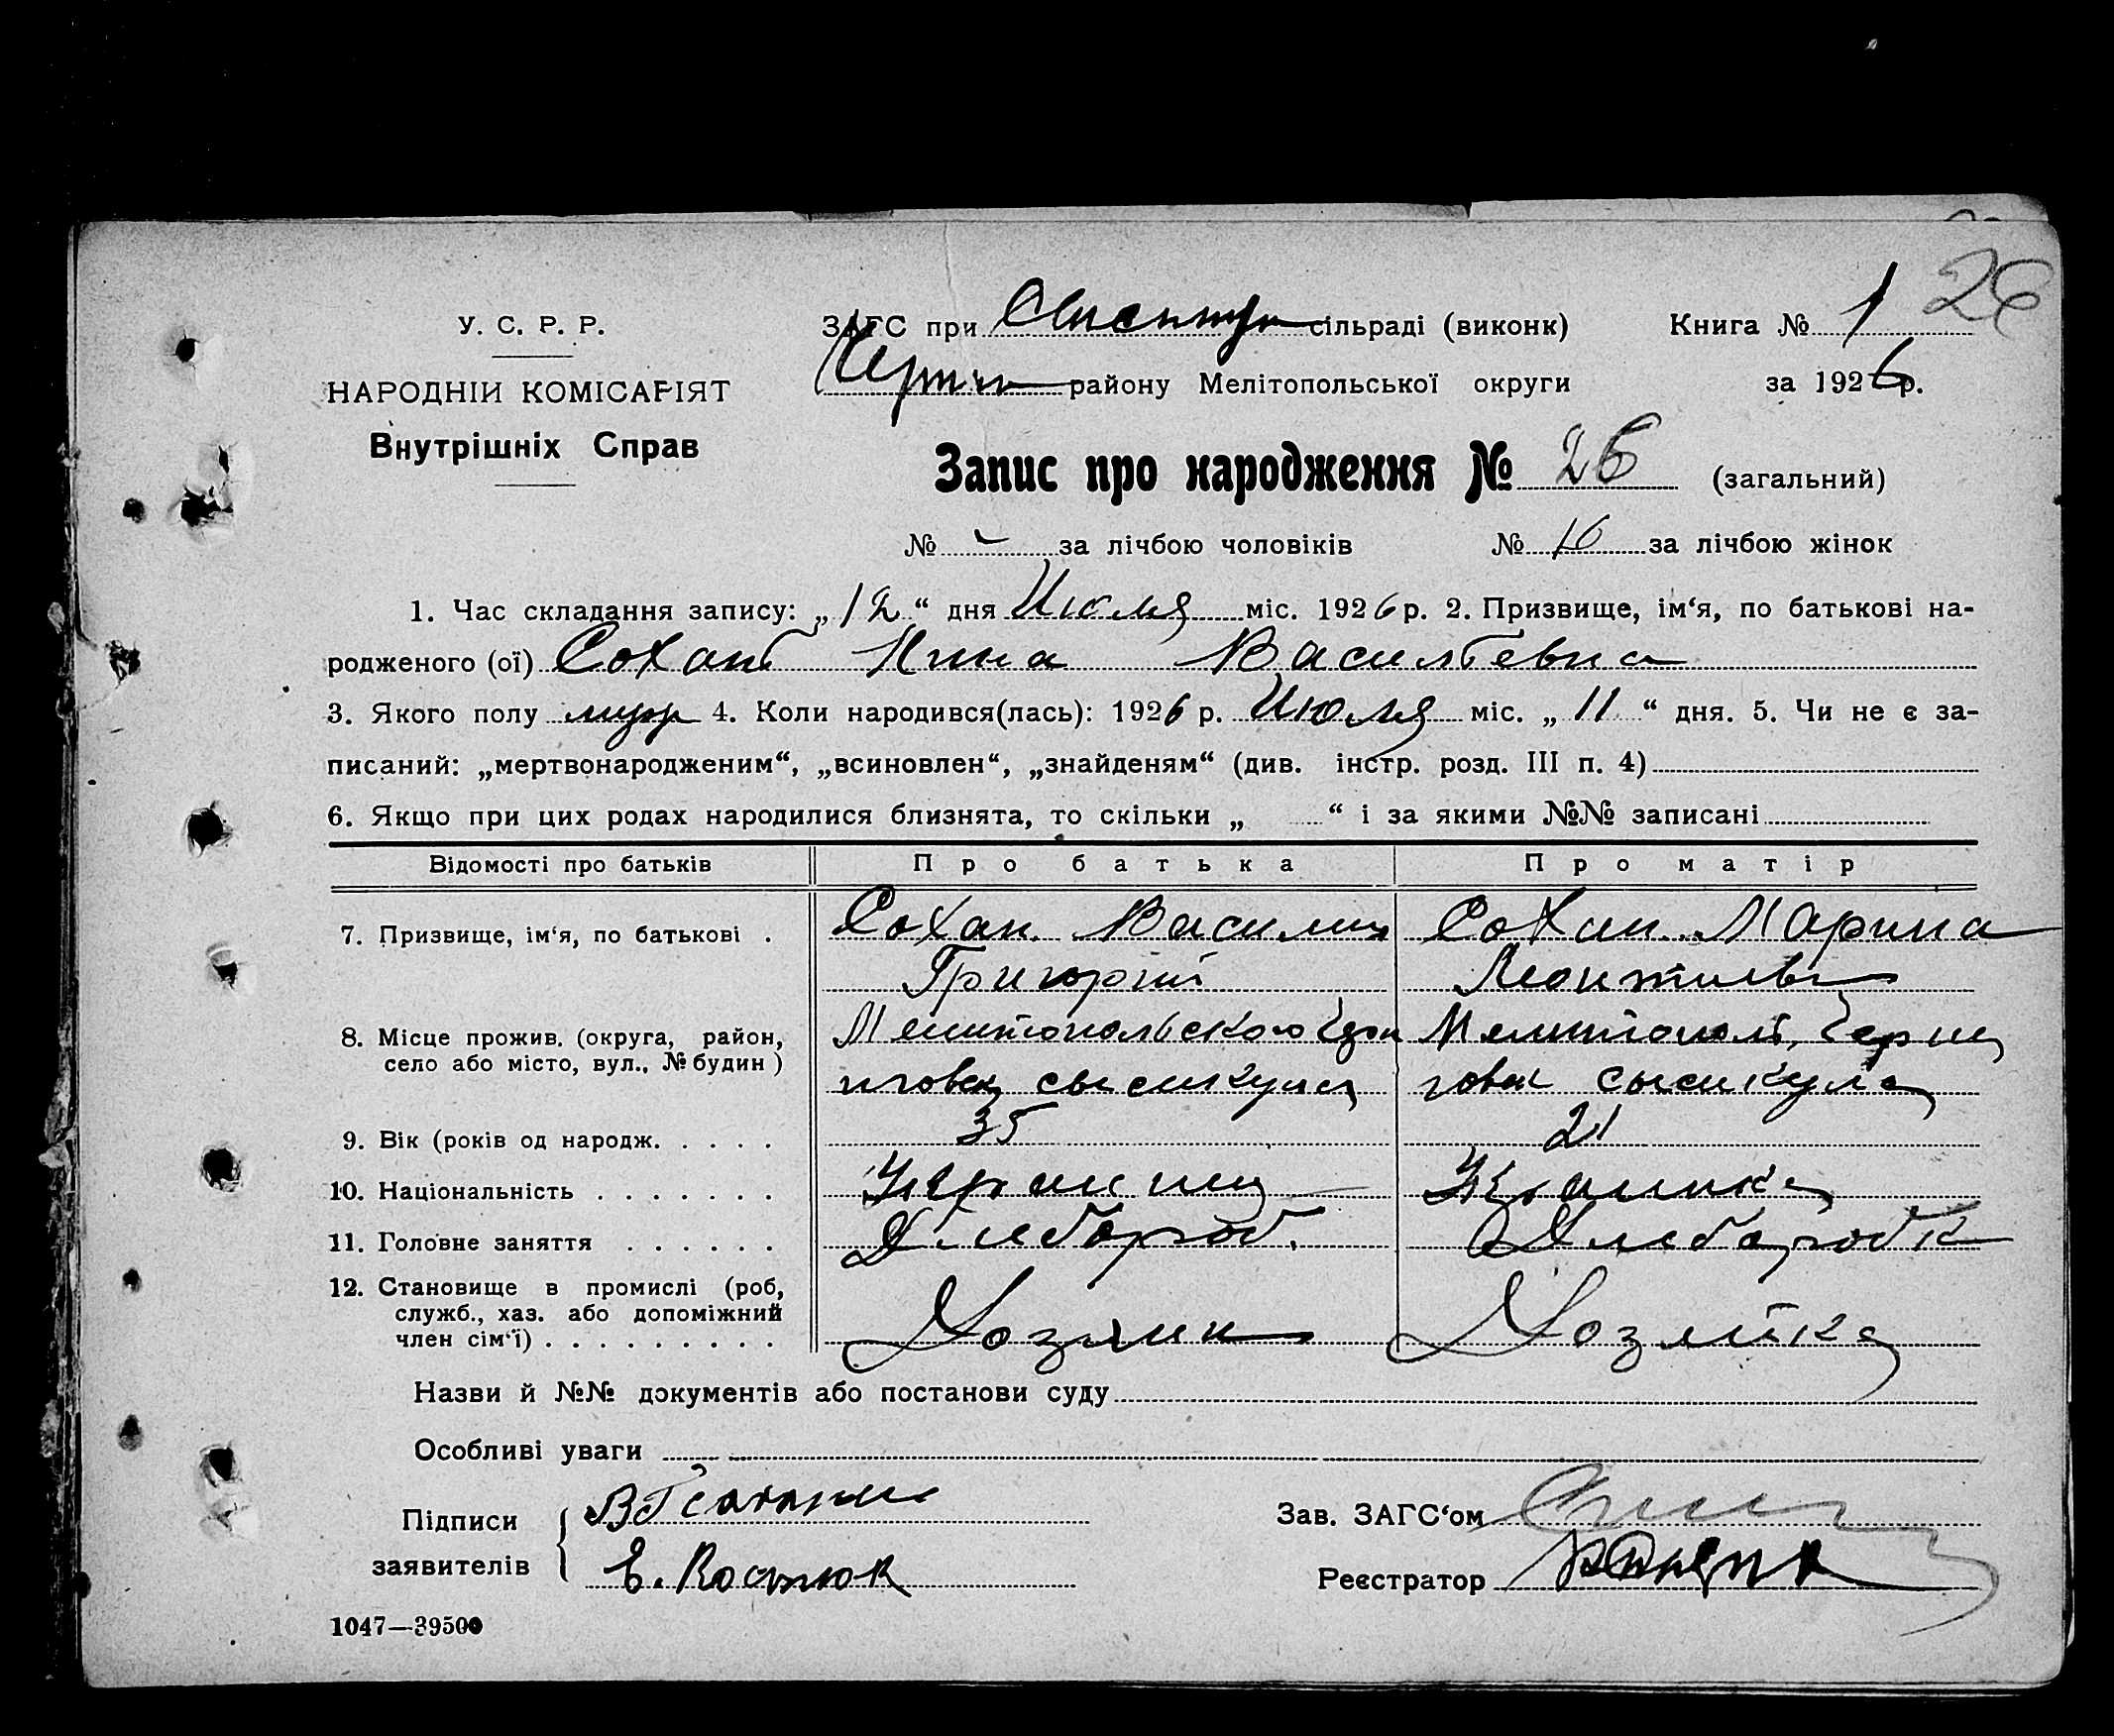 26
У. С. Р. Р.
НАРОДНІЙ КОМІСАРІЯТ
Внутрішніх Справ
ЗАГС при сільраді (виконк)
Книга № 1
району Мелітопольської округи
за 1926 р.
Запис про народження № 26 (загальний)
№ - за лічбою чоловіків № 16 за лічбою жінок
1. Час складання запису: „12“ дня Июля міс. 1926 р. 2. Призвище, ім‘я, по батькові на-
родженого (ої) Сохань Нина Васильевна
3. Якого полу 4. Коли народився(лась): 1926 р. Июля міс. „11“ дня. 5. Чи не є за-
писаний: „мертвонародженим“, „всиновлен“, „знайденям“ (див. інстр. розд. III п. 4)
6. Якщо при цих родах народилися близнята, то скільки „ “ і за якими №№ записані
Відомості про батьків Про батька Про матір
7. Призвище, ім‘я, по батькові . Сохан Василий Сохан Марина
Григорий
8. Місце прожив. (округа, район,
село або місто, вул., № будин )
Мелитопольского Мелитополь
9. Вік (років од народж. . . . . 35 21
10. Національність . . . . . . .
11. Головне заняття . . . . . . Хлебороб. Хлеборобк
12. Становище в промислі (роб,
служб., хаз. або допоміжний
член сім‘ї) . . . . . . . . . Хозяин Хозяйка
Назви й №№ документів або постанови суду
Особливі уваги
Підписи
заявителів
Е. Костюк
Зав. ЗАГС‘ом
Реєстратор
1047—39500